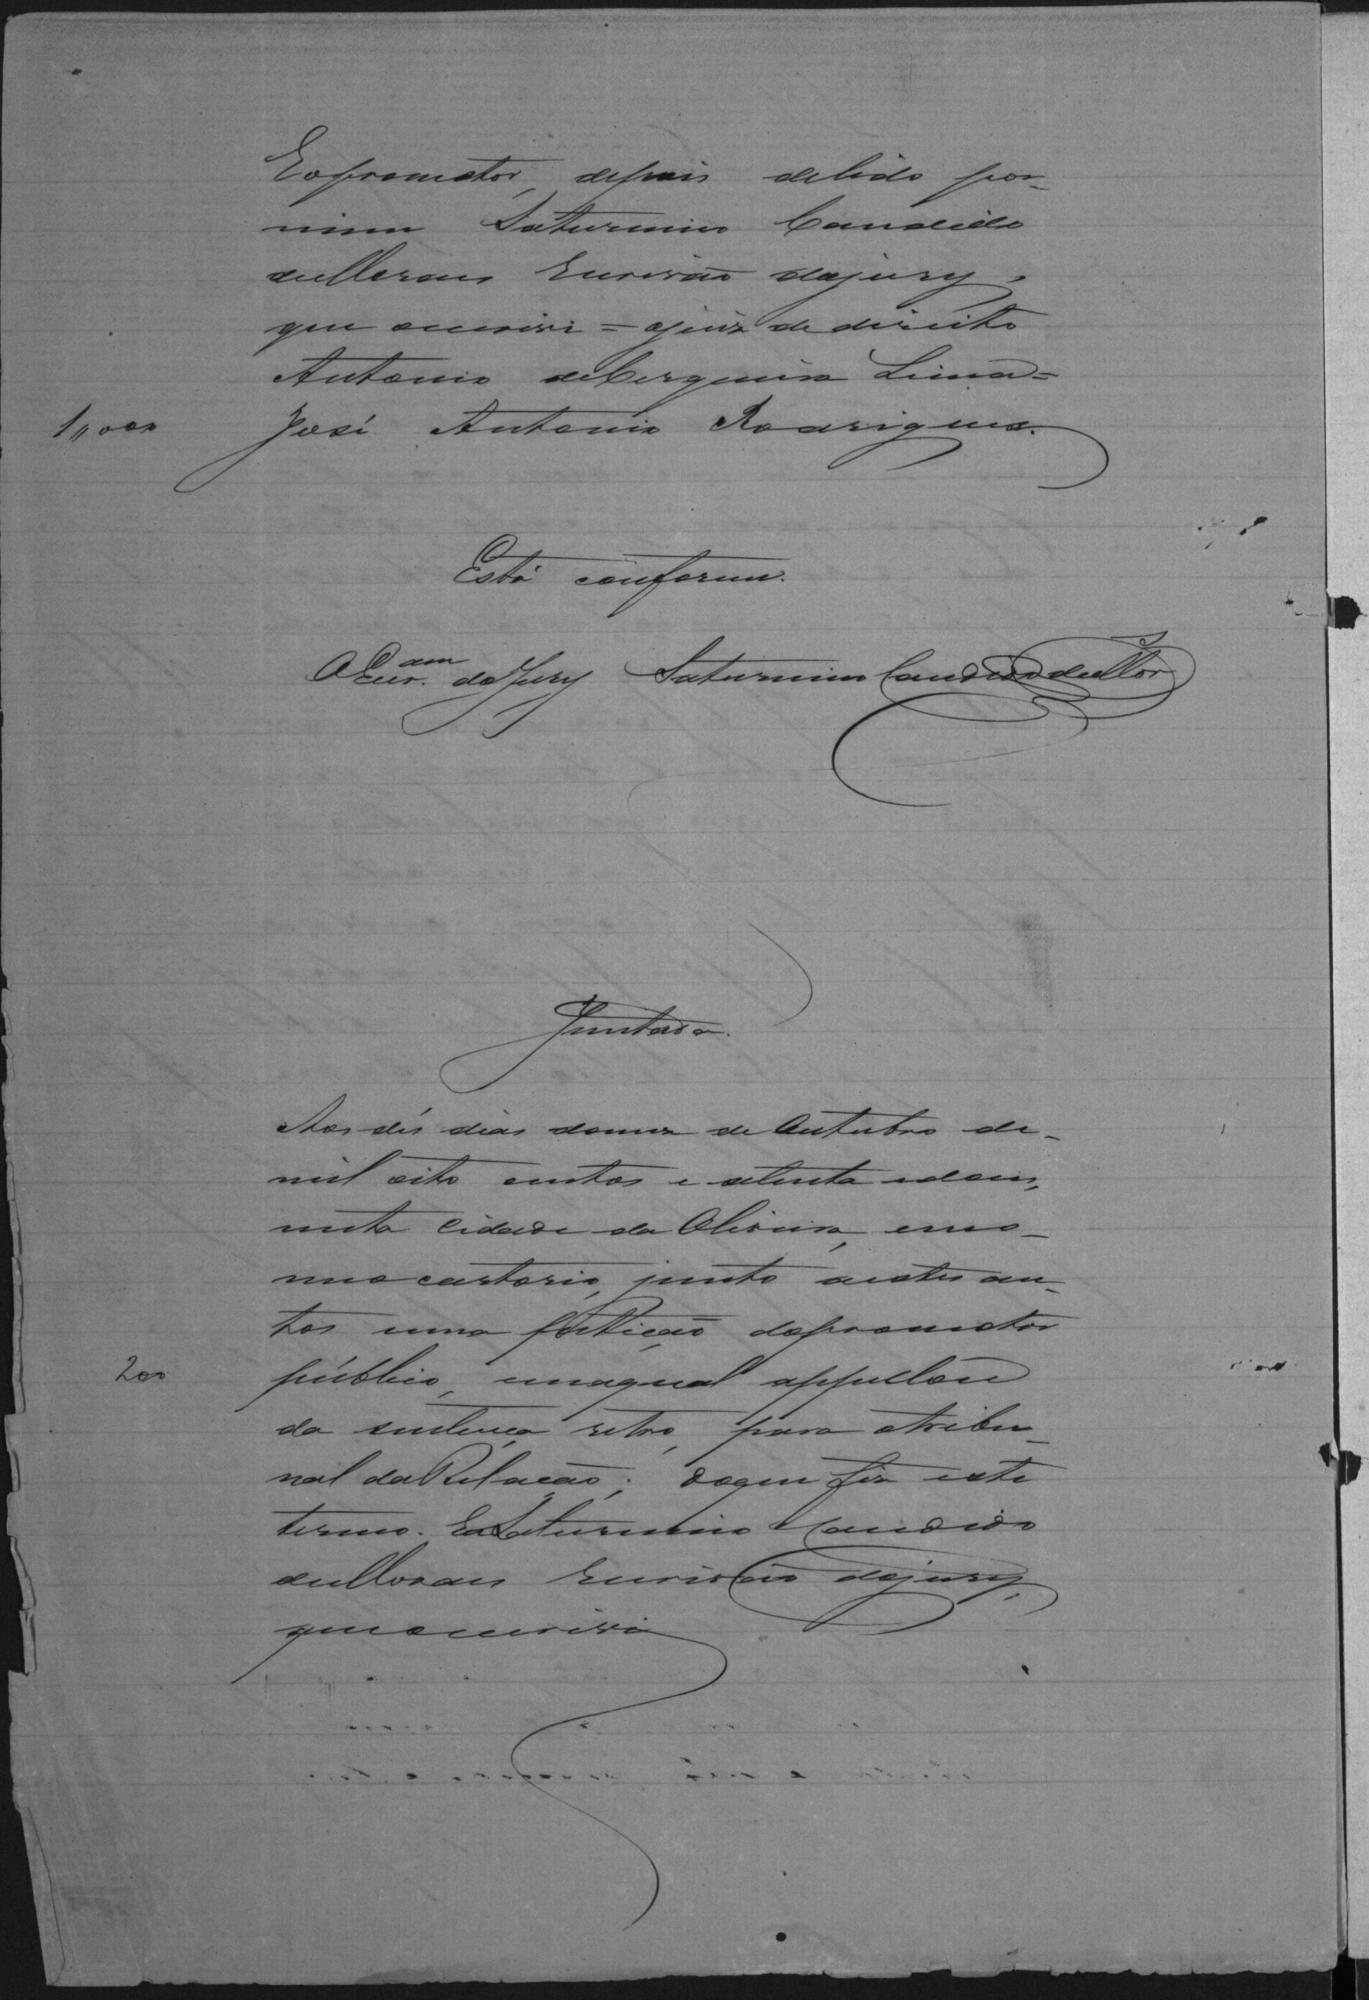 E o promotor, depois de lido por
mim Saturnino Candido
de Moraes Escrivão do jury,
que escrevi = o juiz de direito
Antonio de Cerqueira Lima =
1,,000 José Antonio Rodrigues.
Está conforme.
O Escr.am do Jury Saturnino Candido de Mor
Juntada.
Aos dés dias do mez de Outubro de
mil oito centos e oitenta e dous,
nesta Cidade da Oliveira, em o
meo cartorio, junto a estes au-
tos uma petição do promotor
200 público, na qual appellou
da sentença retro, para o tribu-
nal da Relação; do que fiz este
termo. Eu Saturnino Candido
de Moraes Escrivão do jury,
que o escrevi